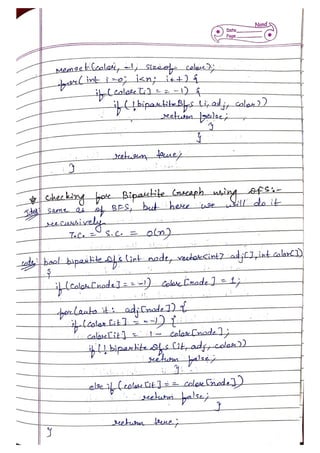 Nand
Date
Page
memset (color, -1, sizeof color);
for( int i=0; i<n; i++) {
if ( color[i] == -1) {
if ( !bipartiteBfs (i, adj, color))
return false;
}
}
return true;
}
* Checking for Bipartite Graph using DFS:-
same as of BFS, but here we will do it
recursively.
T.C. = S.C. = O(n)
code: bool bipartite Dfs (int node, vector<int> adj[], int color[])
{
if (color[node] == -1) color[node] = 1;
for(auto it : adj[node]) {
if (color[it] == -1) {
color[it] = 1 - color[node];
if (! bipartite Dfs (it, adj, color))
return false;
}
else if ( color[it] == color[node])
return false;
}
return true;
}